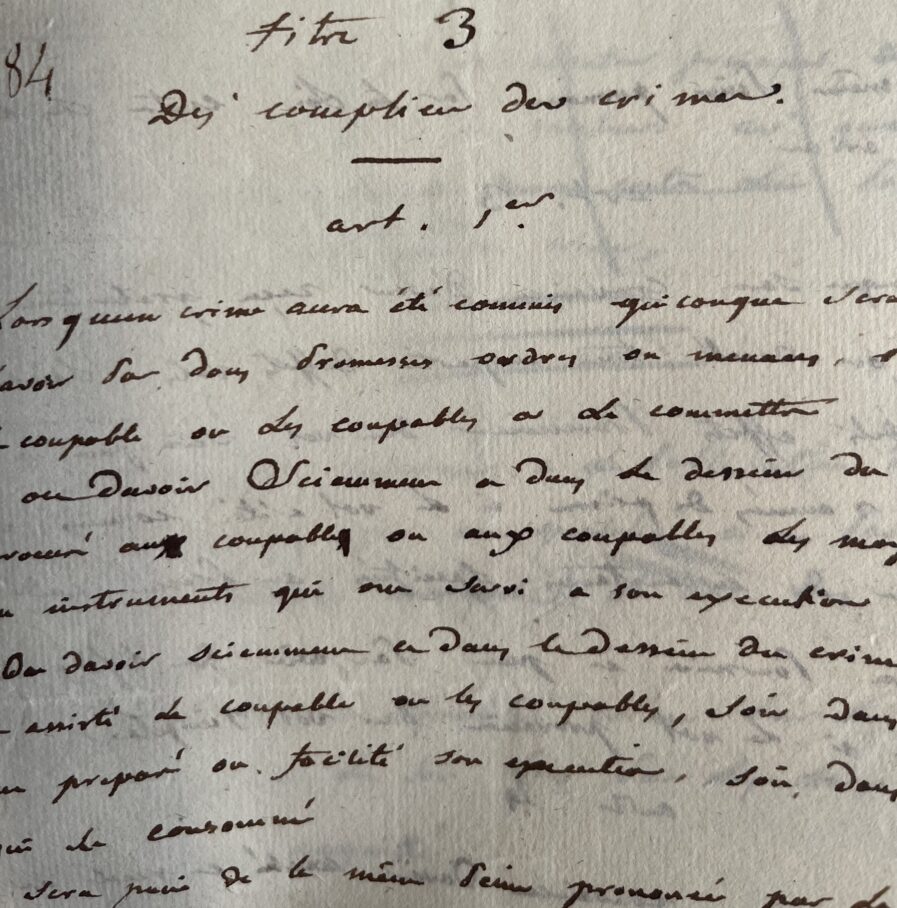 84
titre 3
Des complices des crimes.
art. 1er
Lors quun crime aura été commis quiconque sera
avoir par dons promesses ordres ou menaces,
coupable ou les coupables a le commettre
ou davoir Sciemment et dans le dessein du
rocuré aux coupables ou aux coupables les moy
instruments qui ont servi a son execution
Ou davoir sciemment et dans le dessein du crim
assisté le coupable ou les coupables, soit dans
preparé ou facilité son execution, soit dans
qui la consommé
sera puni de la même peine prononcée par la